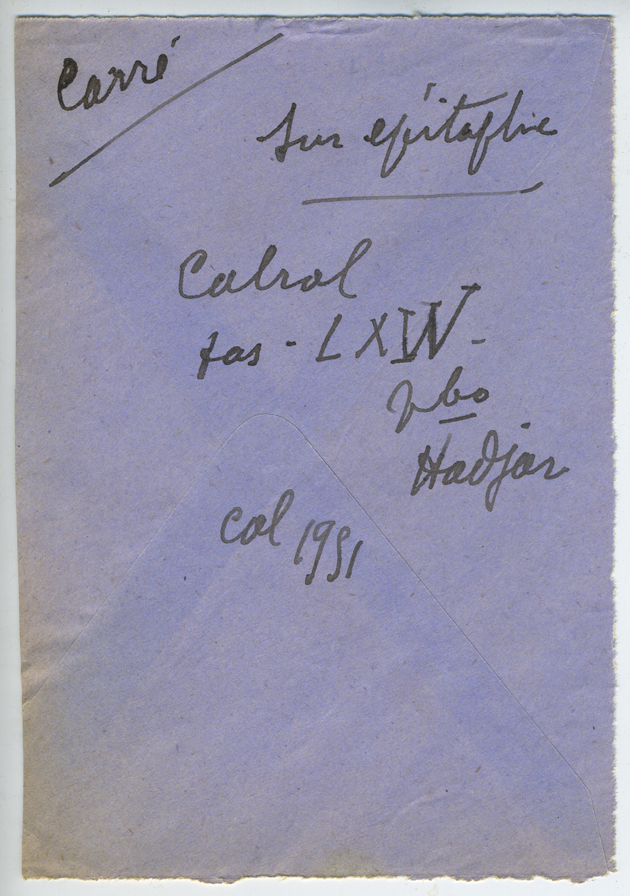 Carré
sur épitaphe
Cabrol
fas - LXIV -
vbo
Hadjar
col 1951